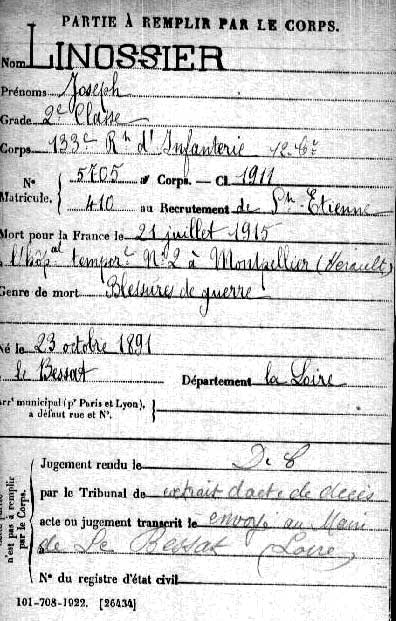 PARTIE À REMPLIR PAR LE CORPS.
Nom LINOSSIER
Prénoms Joseph
Grade 2e Classe
Corps 133e Rt d'Infanterie 12e Cie
N° Matricule. { 5705 au Corps. — Cl. 1911
410 au Recrutement de St-Etienne
Mort pour la France le 21 juillet 1915
à l'hôpal temperre N°2 à Montpellier (Herault)
Genre de mort Blessures de guerre
Né le 23 octobre 1891
Le Bessat Département la Loire
arrt municipal (pr Paris et Lyon), à défaut rue et N°. }
n'est pas à remplir par le Corps. {
Jugement rendu le D. C
par le Tribunal de extrait d'acte de décès
acte ou jugement transcrit le envoyé au Maire
de Le Bessat (Loire)
N° du registre d'état civil
101-708-1922. [26434]